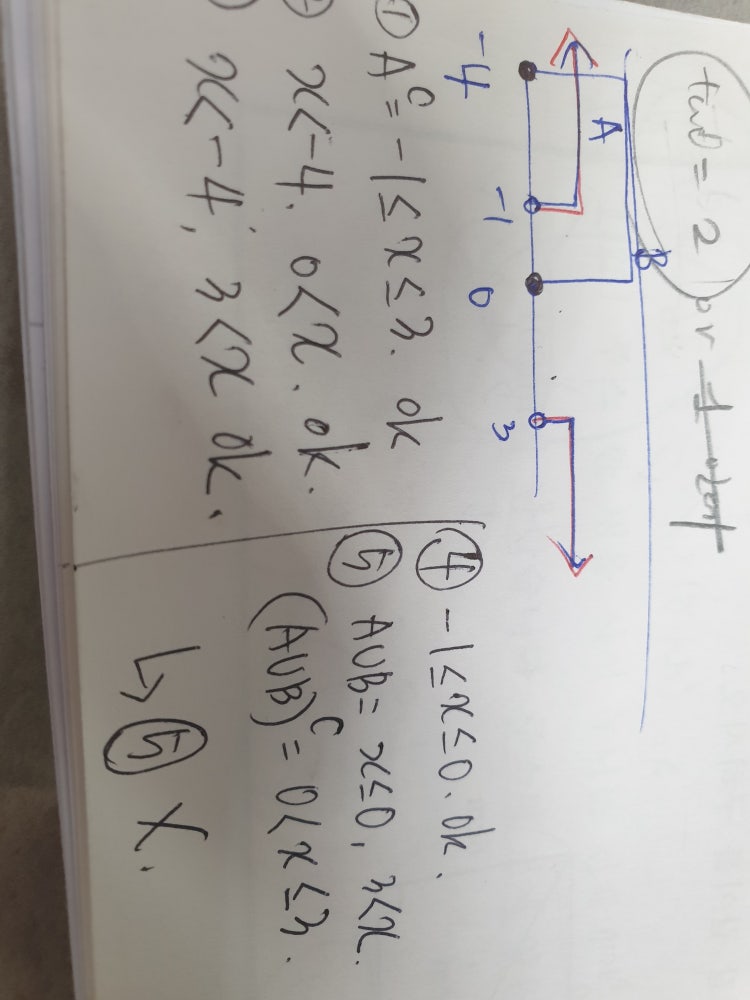 = 2 or
B
A
-4 -1 0 3
① A^c = -1 ≤ x ≤ 3. ok
x < -4, 0 < x. ok.
x < -4, 3 < x ok.
④ -1 ≤ x ≤ 0. ok.
⑤ A∪B = x ≤ 0, 3 < x.
(A∪B)^c = 0 < x ≤ 3.
↳ ⑤ X.